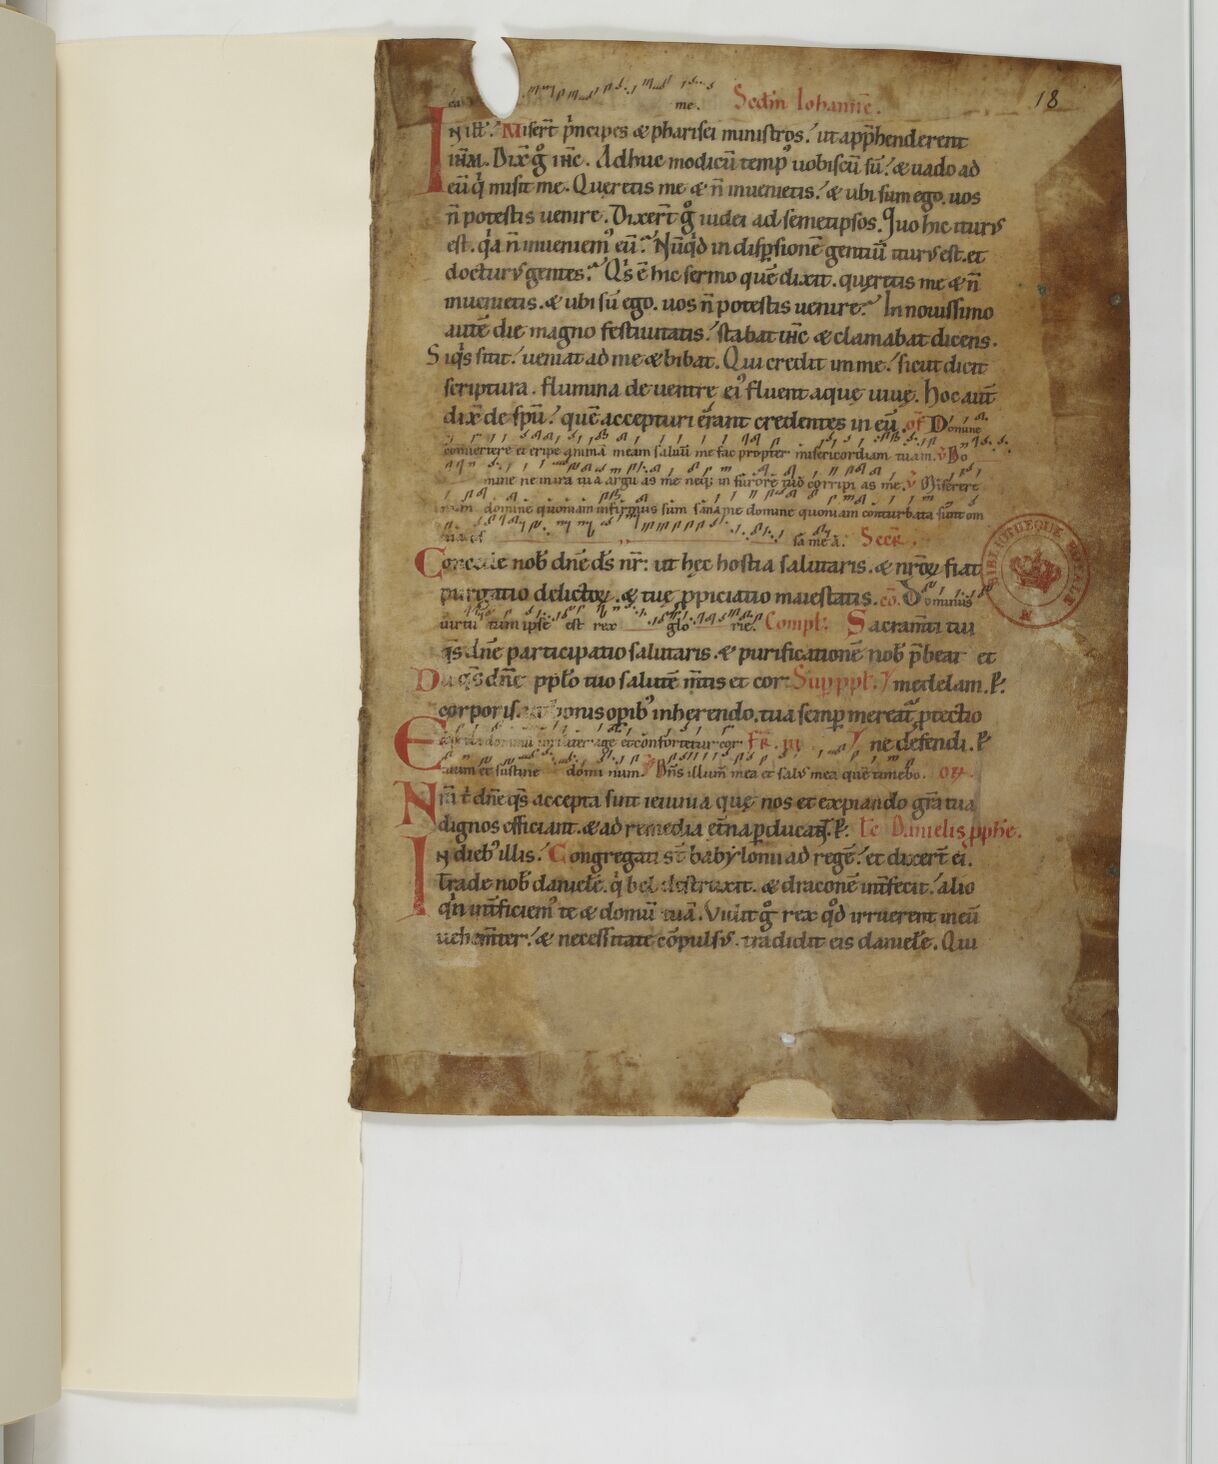 me. Sedm Iohanne. 18
IN illt. Misert pncipes & pharisei ministros. ut apphenderent
ihm. Dix g ihc. Adhuc modicū temp uobiscū sū. & uado ad
eū q misit me. Queretis me & n inuenietis. & ubi sum ego. uos
n potestis uenire. Dixert g iudei ad semetipsos. Quo hic iturus
est. qa n inueniem eū. Nūqd in dispsionē gentiū iturus est. et
docturus gentes. Qs ē hic sermo quē dixit. queretis me & n
inuenietis. & ubi sū ego. uos n potestis uenire. In nouissimo
autē die magno festiuitatis. stabat ihc & clamabat dicens.
Siqs sitit. ueniat ad me & bibat. Qui credit in me. sicut dicit
scriptura. flumina de uentre ei fluent aquę uiuę. Hoc aut
dix de spū. quē accepturi erant credentes in eū. of Domine
conuertere et eripe animā meam saluū me fac propter misericordiam tuam. v Do
mine ne in ira tua argu as me neq; in furorē tuo corripi as me. v Miserere
domine quoniam infirmus sum sana me domine quoniam conturbata sunt om
sa me a. Secr.
Concede nob dnē ds nr: ut hęc hostia salutaris. & nrōꝝ fiat
purgatio delictoꝝ. & tuę ppiciatio maiestatis. cō. Dominus
uirtu tum ipse est rex glo rie. Compl. Sacramti tui
qs dnē participatio salutaris. & purificationē nob pbeat et
Da qs dnē pplo tuo salutē mtis et cor: Sup ppl. medelam. P.
corporis. bonis opib inherendo. tua semp mereat ptectio
domini uiriliter age et confortetur cor fr. iii ne defendi. P
tuum et sustine domi num. Dns illum mea et salus mea quē timebo. or.
Nra t dnē qs accepta sint ieiunia quę nos et expiando gra tua
dignos efficiant. & ad remedia etna pducat. P. Łe Danielis pphe.
IN dieb illis. Congregati st babylonii ad regē. et dixert ei.
Trade nob daniele. q bel destruxit. & draconē intfecit. alio
qn intficiem te & domū tuā. Vidit g rex qd irruerent in eū
uehemter. & necessitate cōpulsus. tradidit eis daniele. Qui
BIBLIOTHEQUE ROYALE